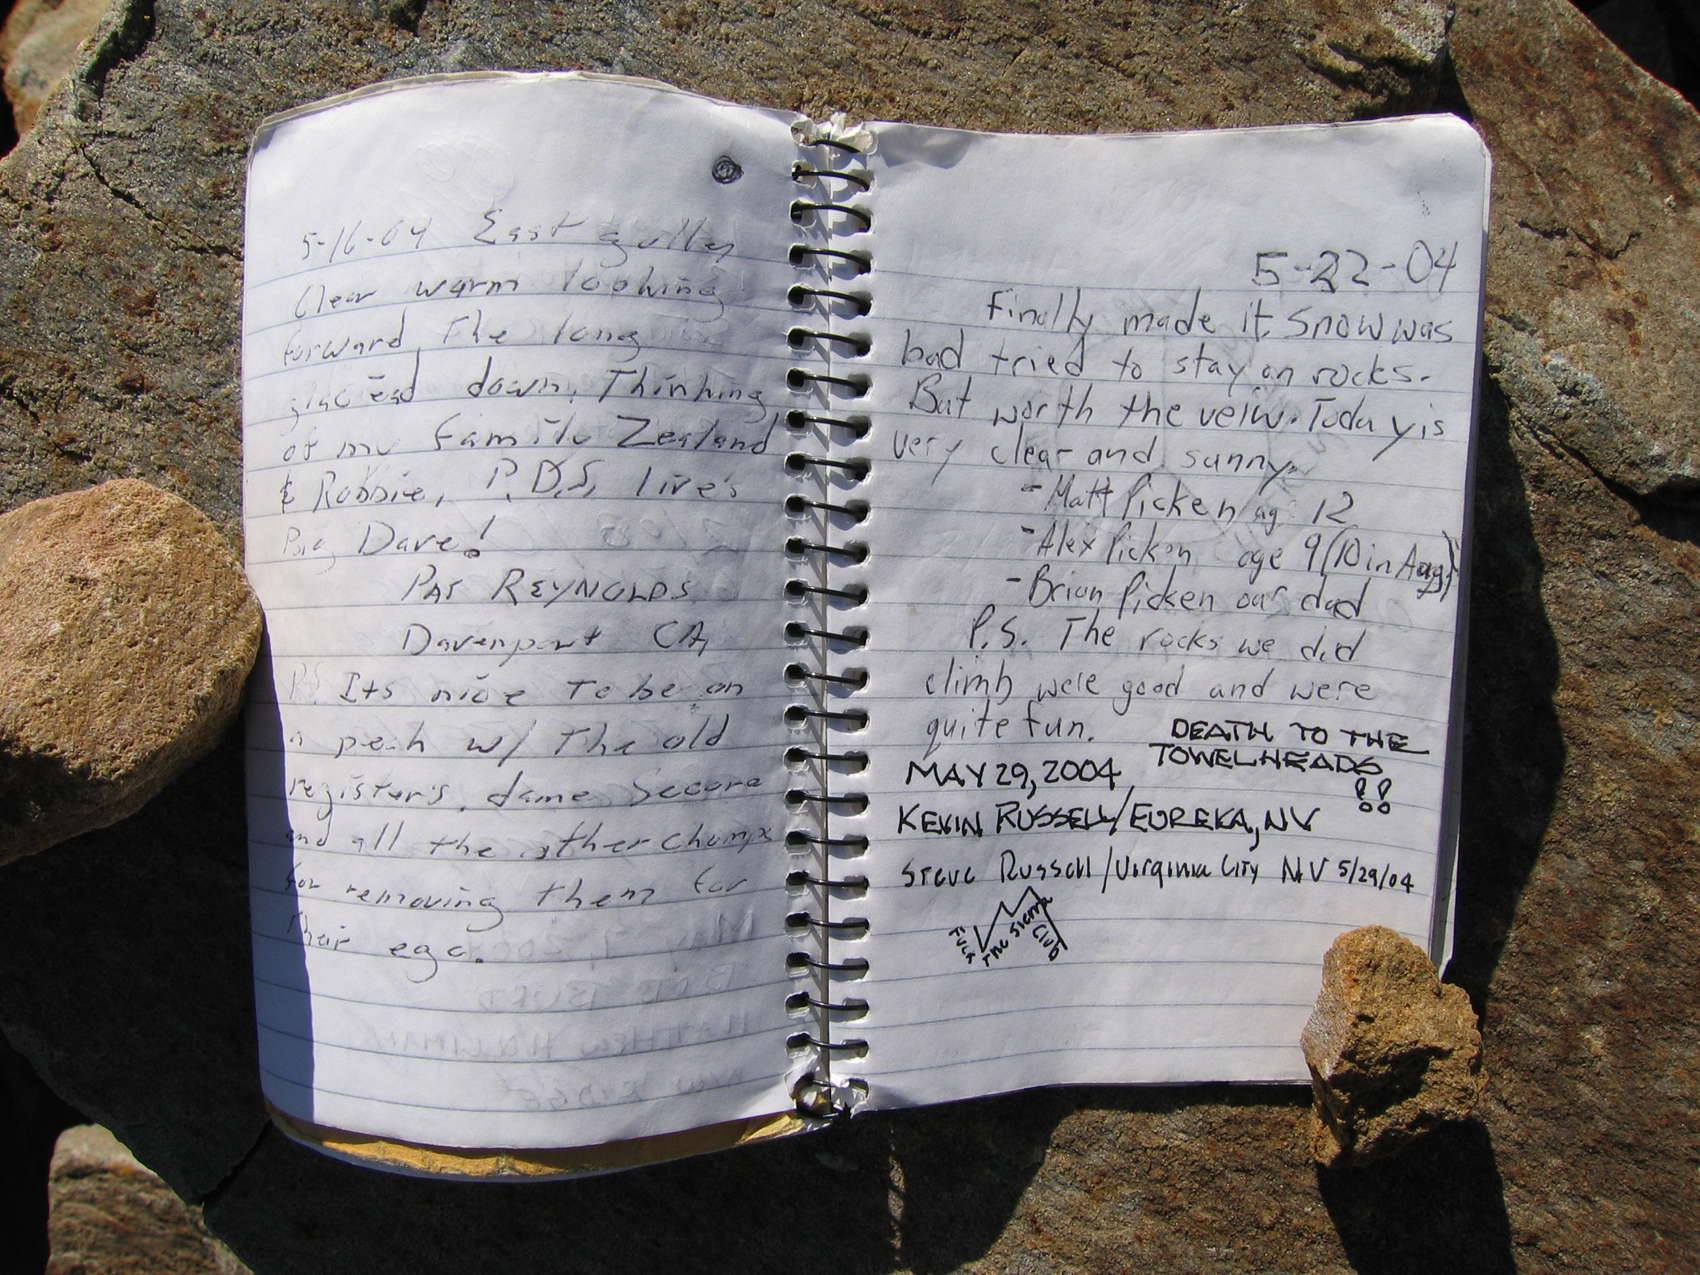 5-16-04 East gulley
Clear warm looking
forward The long
glacead down, Thinking
of my family Zealand
& Robbie, P.D.S, live's
Big Dave!
PAT REYNOLDS
Davenport CA,
P.S Its nice To be on
a peak w/ The old
register's, dame Secore
and all the other chomps
for removing them for
Their ego.
5-22-04
Finally made it. Snow was
bad tried to stay on rocks.
But worth the veiw. Today is
very clear and sunny.
- Matt Picken ag 12
- Alex Picken age 9 (10 in Aug)
- Brian Picken our dad
P.S. The rocks we did
climb were good and were
quite fun.
DEATH TO THE
TOWELHEADS
!!
MAY 29, 2004
KEVIN RUSSELL/EUREKA, NV
Steve Russell/Virginia City NV 5/29/04
The Sierra
Club